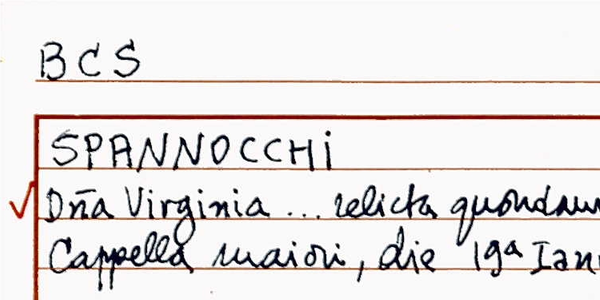 BCS
SPANNOCCHI
Dña Virginia ... relicta quondam
Cappella maiori, die 19ª Ian